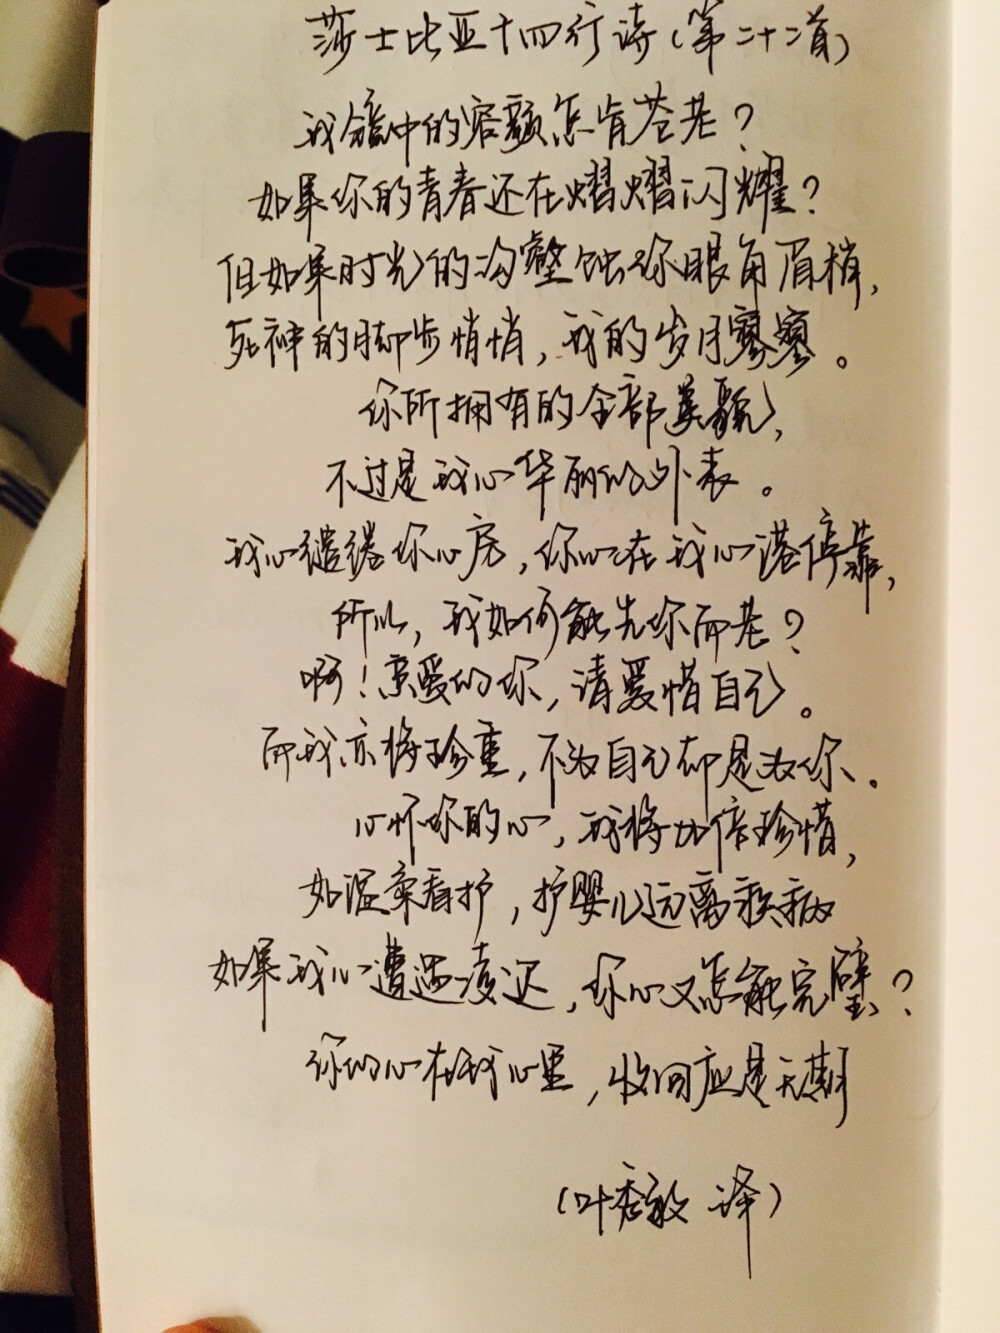 莎士比亚十四行诗（第二十二首）
我镜中的容颜怎肯苍老？
如果你的青春还在熠熠闪耀？
但如果时光的沟壑蚀你眼角眉梢，
死神的脚步悄悄，我的岁月寥寥。
你所拥有的全部美貌，
不过是我心华丽的外表。
我心缱绻你心房，你心在我心港停靠，
所以，我如何能先你而老？
啊！亲爱的你，请爱惜自己。
而我亦将珍重，不为自己却是为你。
心怀你的心，我将加倍珍惜，
如温柔看护，护婴儿远离疾病
如果我心遭遇凌迟，你心又怎能完璧？
你的心在我心里，收回应是无期
（叶秀敏 译）